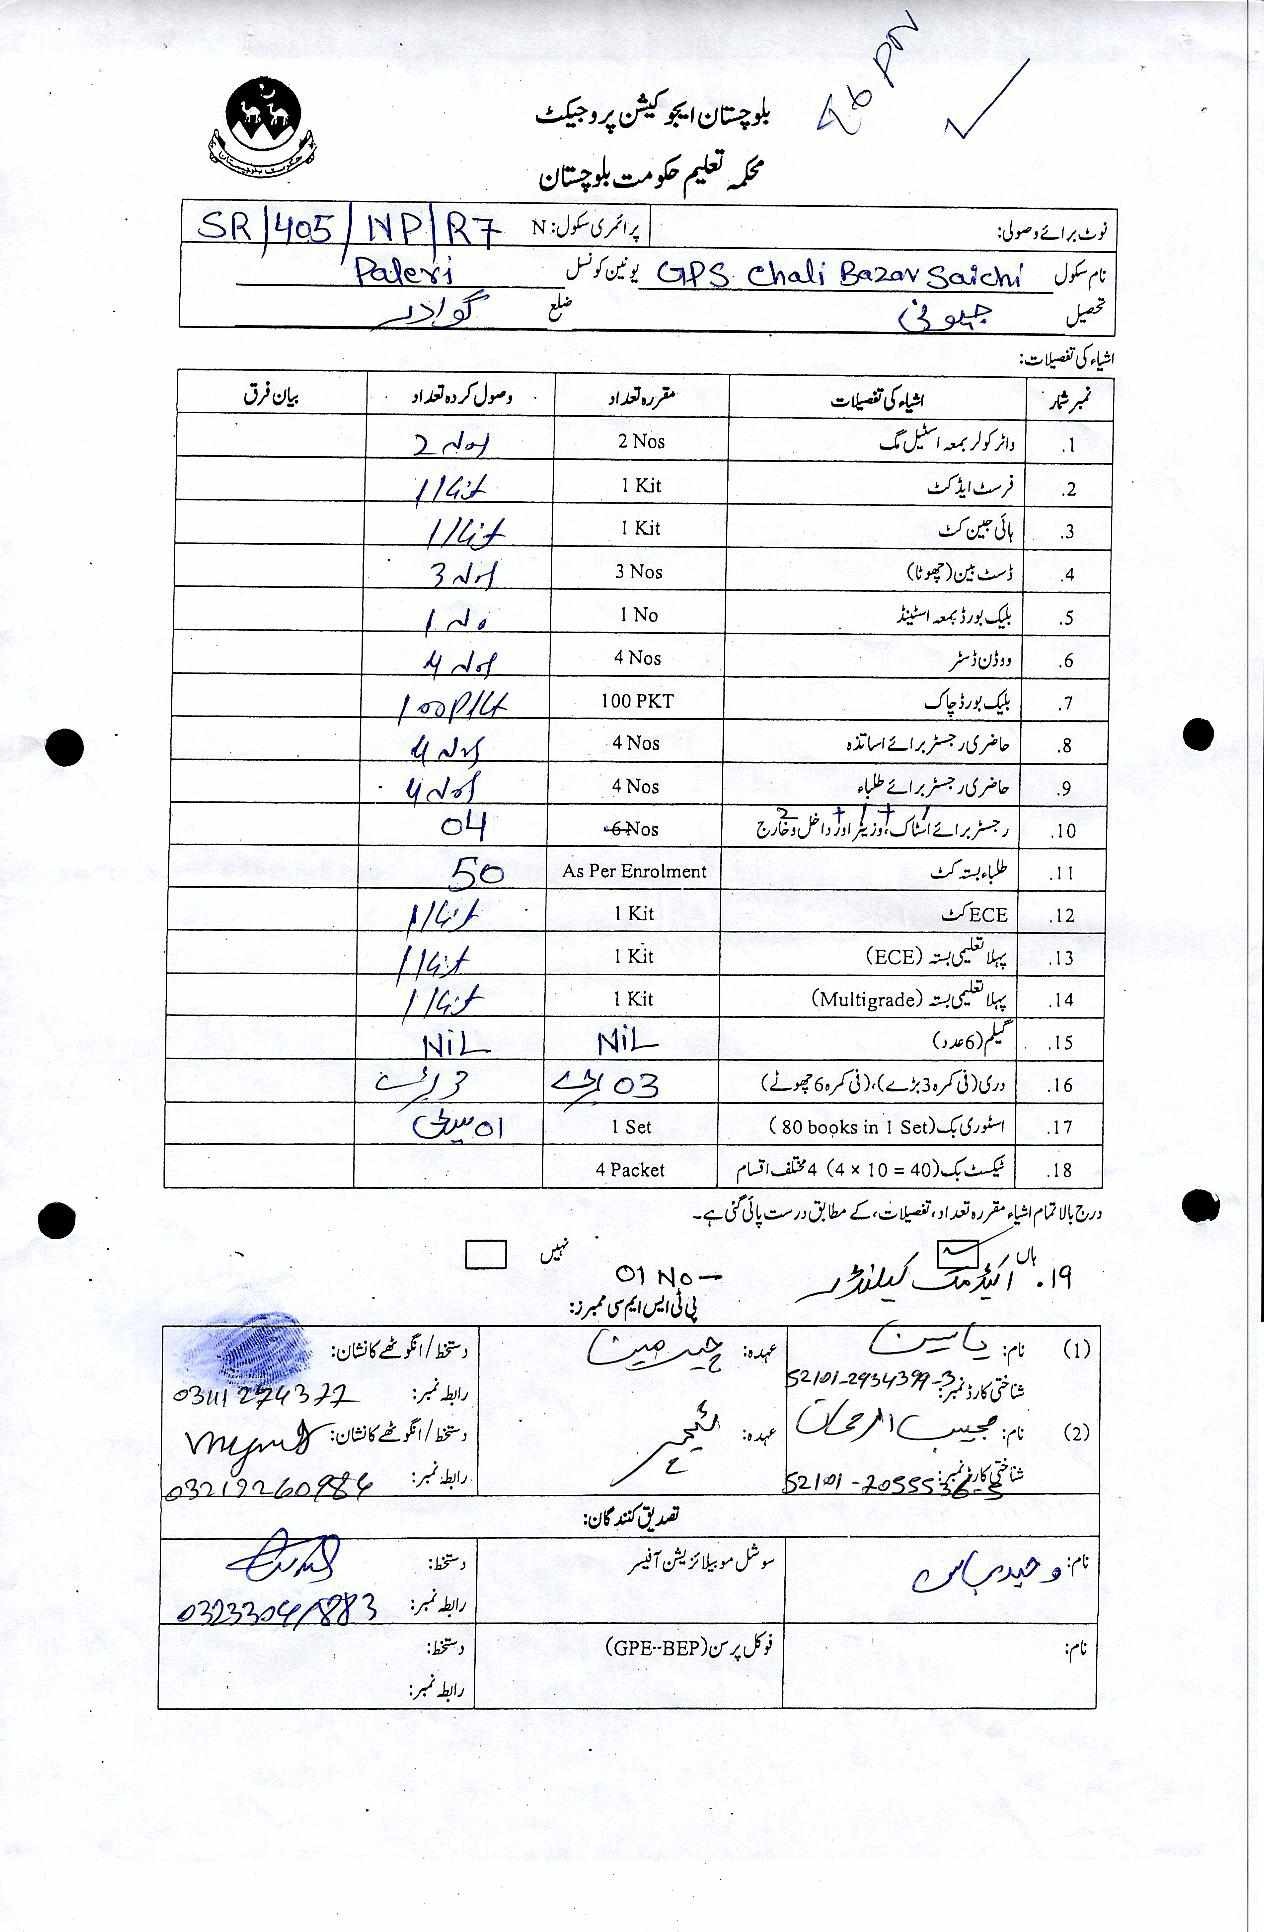 بلوچستان ایجوکیشن پروجیکٹ
محکمہ تعلیم حکومت بلوچستان
نوٹ برائے وصولی: پرائمری سکول: N SR/405/NP/R7
نام سکول GPS Chali Bazar Saichi یونین کونسل Paleri
تحصیل جیونی ضلع گوادر
اشیاء کی تفصیلات:
نمبر شمار اشیاء کی تفصیلات مقررہ تعداد وصول کردہ تعداد بیان فرق
1. واٹر کولر بمعہ اسٹیل مگ 2 Nos 2 Nos
2. فرسٹ ایڈ کٹ 1 Kit 1 Kit
3. ہائی جین کٹ 1 Kit 1 Kit
4. ڈسٹ بین (چھوٹا) 3 Nos 3 Nos
5. بلیک بورڈ بمعہ اسٹینڈ 1 No 1 No
6. ووڈن ڈسٹر 4 Nos 4 Nos
7. بلیک بورڈ چاک 100 PKT 100 PKt
8. حاضری رجسٹر برائے اساتذہ 4 Nos 4 Nos
9. حاضری رجسٹر برائے طلباء 4 Nos 4 Nos
10. رجسٹر برائے اسٹاک، وزیٹر اور داخل و خارج 6 Nos 04
11. طلباء بستہ کٹ As Per Enrolment 50
12. ECE کٹ 1 Kit 1 Kit
13. پہلا تعلیمی بستہ (ECE) 1 Kit 1 Kit
14. پہلا تعلیمی بستہ (Multigrade) 1 Kit 1 Kit
15. گیلم (6 عدد) NiL NiL
16. دری (فی کمرہ 3 بڑے)، (فی کمرہ 6 چھوٹے) 03 بڑے 3 بڑے
17. اسٹوری بک (80 books in 1 Set) 1 Set 01 سیٹ
18. ٹیکسٹ بک (4 × 10 = 40) 4 مختلف اقسام 4 Packet
درج بالا تمام اشیاء مقررہ تعداد، تفصیلات، کے مطابق درست پائی گئی ہے۔
ہاں نہیں
19. اکیڈمک کیلنڈر 01 No
پی ٹی ایس ایم سی ممبرز:
(1) نام: یاسین عہدہ: چیرمین دستخط/انگوٹھے کا نشان:
شناختی کارڈ نمبر: 52101-2934399-3 رابطہ نمبر:
(2) نام: مجیب الرحمان عہدہ: ٹیچر دستخط/انگوٹھے کا نشان:
شناختی کارڈ نمبر: رابطہ نمبر: 03219260984
تصدیق کنندگان:
نام: سوشل موبیلائزیشن آفیسر دستخط:
رابطہ نمبر:
نام: فوکل پرسن (GPE--BEP) دستخط:
رابطہ نمبر: